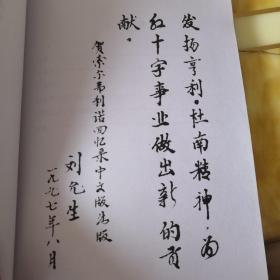 发扬亨利·杜南精神·为
红十字事业做出新的贡
献。
贺索尔弗利诺回忆录中文版出版
刘允生
一九九七年八月